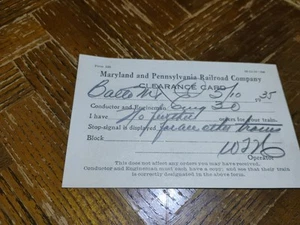 Maryland and Pennsylvania Railroad Company
CLEARANCE CARD
Balto Md 5/10 1935
Conductor and Engineman, Eng 30
I have No further orders for your train.
Stop-signal is displayed for an other trains
Block
Operator
This does not affect any orders you may have received.
Conductor and Engineman must each have a copy, and see that their train
is correctly designated in the above form.